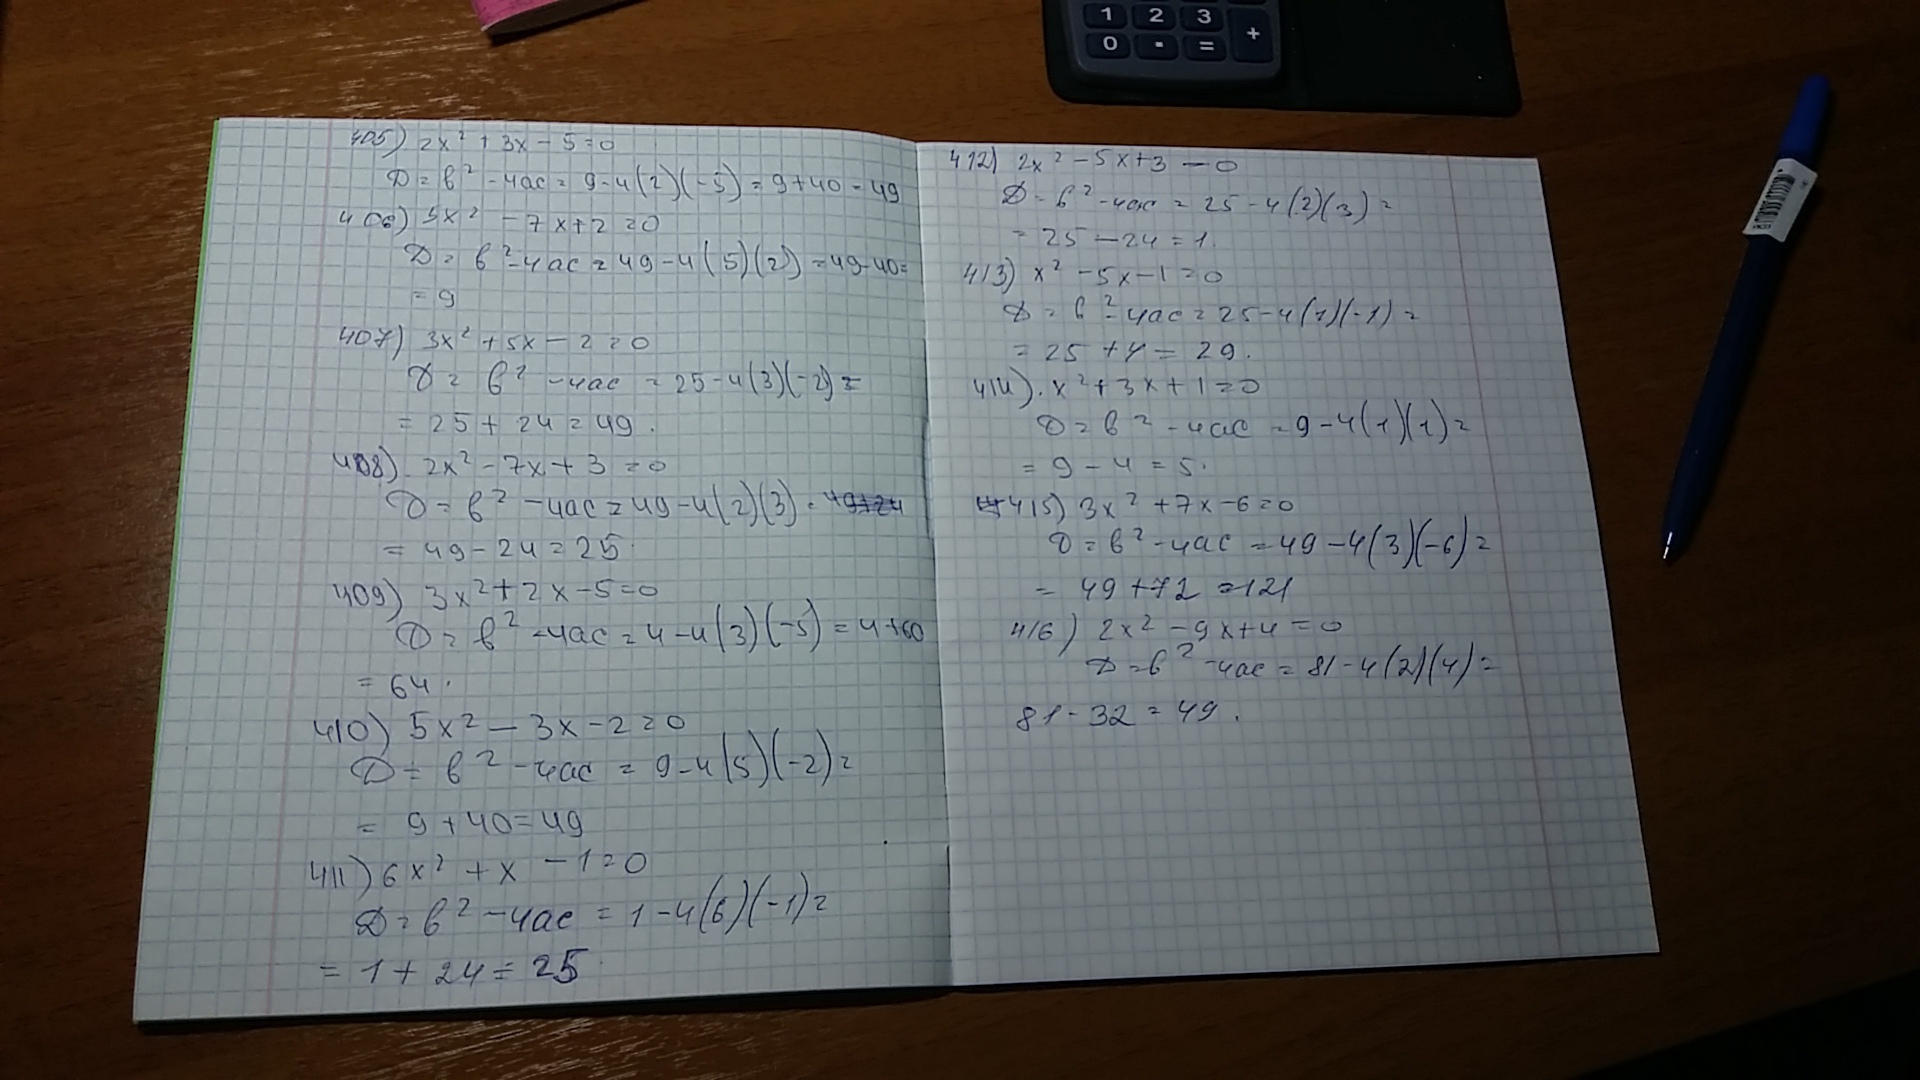 1 2 3
0 . = +
405) 2x² + 3x - 5 = 0
D = b² - 4ac = 9 - 4(2)(-5) = 9 + 40 = 49
406) 5x² - 7x + 2 = 0
D = b² - 4ac = 49 - 4(5)(2) = 49 - 40 =
= 9
407) 3x² + 5x - 2 = 0
D = b² - 4ac = 25 - 4(3)(-2) =
= 25 + 24 = 49.
408) 2x² - 7x + 3 = 0
D = b² - 4ac = 49 - 4(2)(3) =
= 49 - 24 = 25.
409) 3x² + 2x - 5 = 0
D = b² - 4ac = 4 - 4(3)(-5) = 4 + 60
= 64.
410) 5x² - 3x - 2 = 0
D = b² - 4ac = 9 - 4(5)(-2) =
= 9 + 40 = 49
411) 6x² + x - 1 = 0
D = b² - 4ac = 1 - 4(6)(-1) =
= 1 + 24 = 25
412) 2x² - 5x + 3 - 0
D = b² - 4ac = 25 - 4(2)(3) =
= 25 - 24 = 1.
413) x² - 5x - 1 = 0
D = b² - 4ac = 25 - 4(1)(-1) =
= 25 + 4 = 29.
414). x² + 3x + 1 = 0
D = b² - 4ac = 9 - 4(1)(1) =
= 9 - 4 = 5.
415) 3x² + 7x - 6 = 0
D = b² - 4ac = 49 - 4(3)(-6) =
= 49 + 72 = 121
416) 2x² - 9x + 4 = 0
D = b² - 4ac = 81 - 4(2)(4) =
81 - 32 = 49.